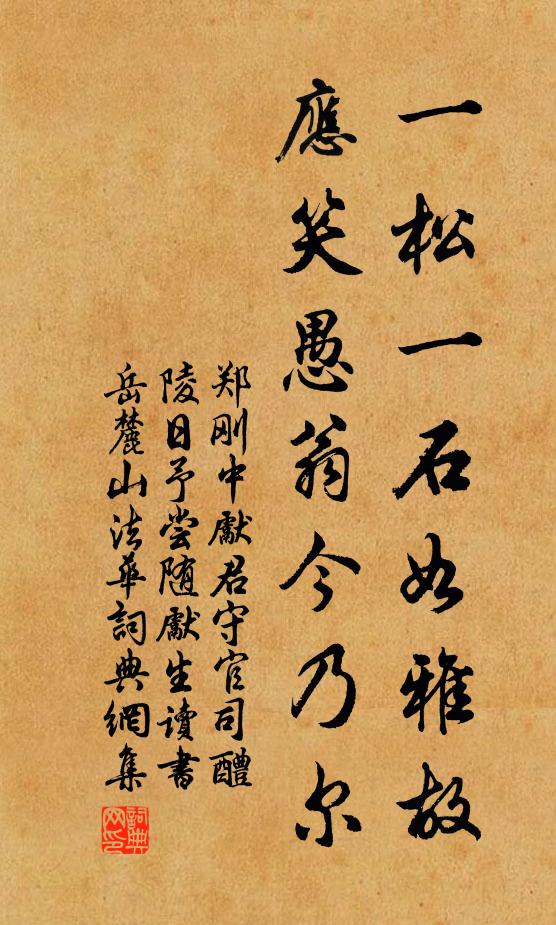 一松一石如雅故
應笑愚翁今乃尔
郑刚中獻君守官司醴
陵日予尝随獻生讀書
岳麓山法華詞典網集
詞典网印